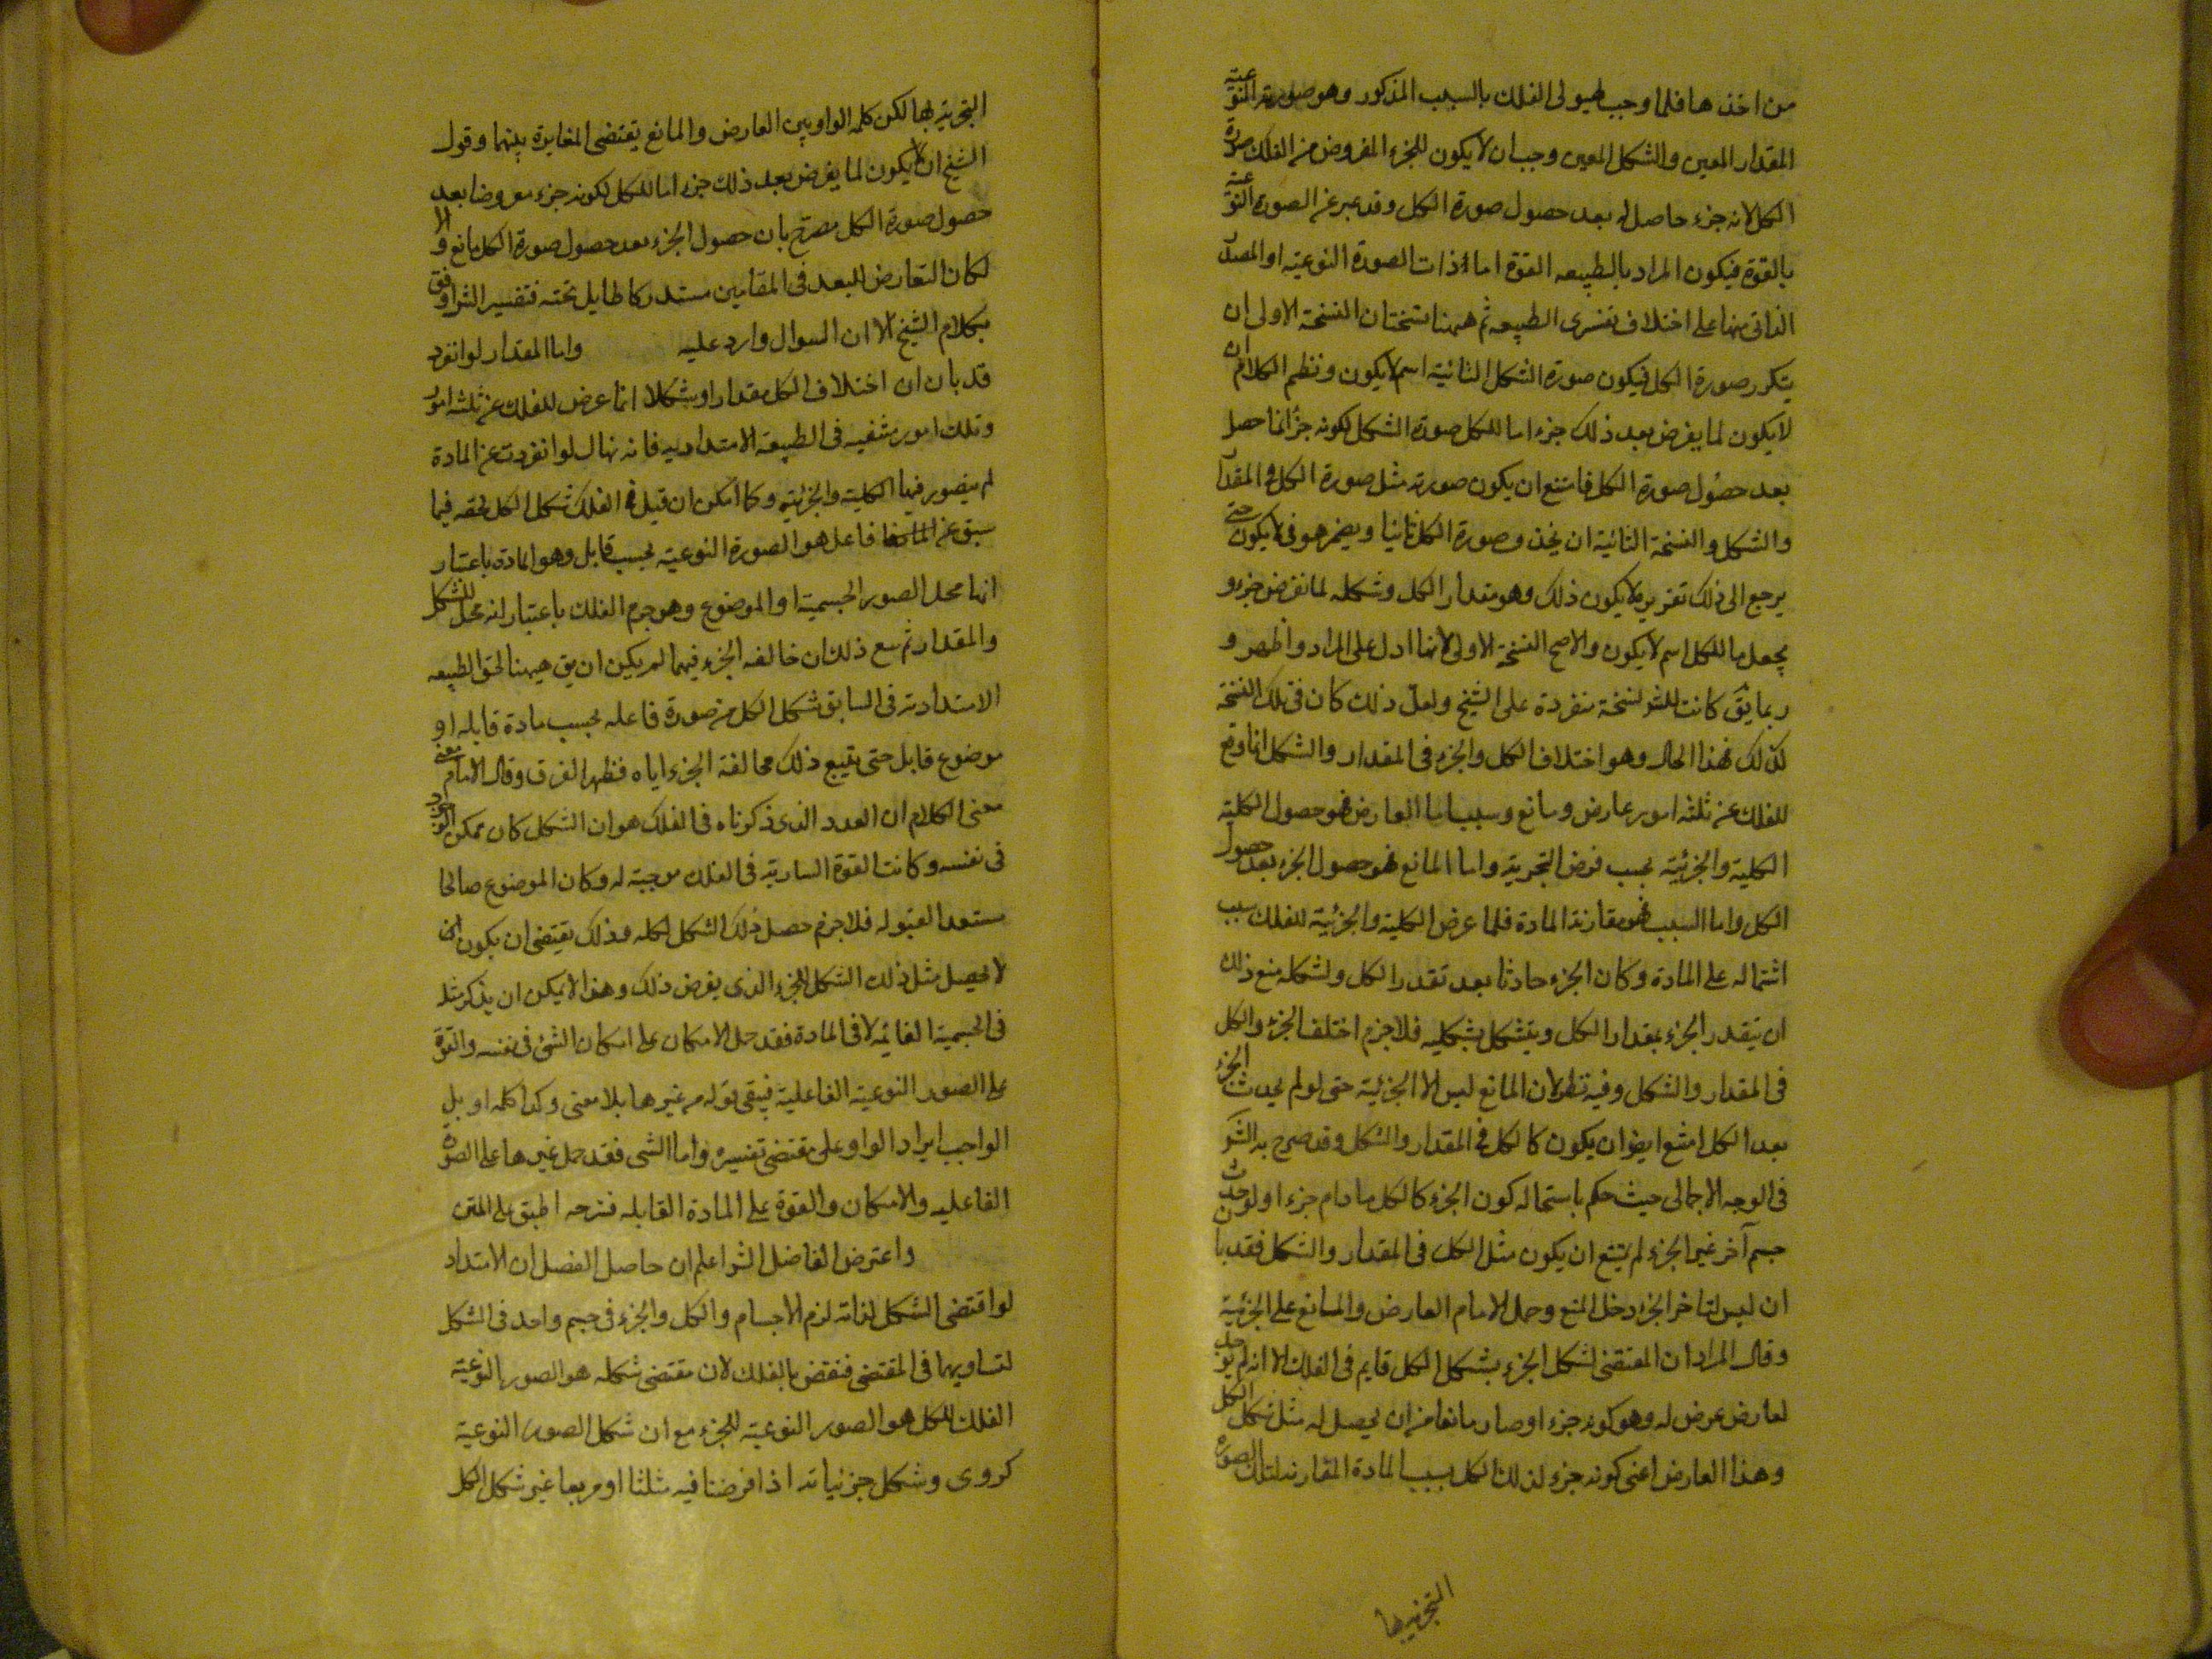 من اخذها فلما وجب هيولى الفلك بالسبب المذكور وهو صورته النوعية
المقدار المعين والشكل المعين وجب ان لا يكون للجزء المفروض من الفلك صورة
الكل لانه جزء حاصل له بعد حصول صورة الكل وقد عبر عن الصورة النوعية
بالقوة فيكون المراد بالطبيعه القوة اما ذات الصورة النوعيه او المصدر
الذاتى منها على اختلاف تفسرى الطبيعه ثم ههنا نسختان النسخة الاولى ان
يتكرر صورة الكل فيكون صورة الشكل الثانية اسم لا يكون ونظم الكلام ان
لا يكون لما يفرض بعد ذلك جزء اما للكل صورة الشكل لكونه جزأ انما حصل
بعد حصول صورة الكل فامتنع ان يكون صورته مثل صورة الكل فى المقدار
والشكل والنسخة الثانية ان يحذف صورة الكل ثانيا ويضمر هو فى لا يكون حتى
يرجع الى ذلك تقريره لا يكون ذلك وهو مقدار الكل وشكله لما نفرض جزء و
يجعل ما للكل اسم لا يكون والاصح النسخة الاولى لانها ادل على المراد واظهر و
ربما يق كانت للشر نسخة منفردة على الشيخ ولعل ذلك كان فى تلك النسخة
لذلك فهذا الحال وهو اختلاف الكل والجزء فى المقدار والشكل انما وقع
للفلك عن ثلثه امور عارض ومانع وسبب اما العارض فهو حصول الكلية
الكلية والجزئية بحسب فرض التجزية واما المانع فهو حصول الجزء بعد حصول
الكل واما السبب فهو مقارنة المادة فلما عرض الكلية والجزئية للفلك بسبب
اشتماله على المادة وكان الجزء حادثا بعد تقدر الكل وتشكله منع ذلك
ان يتقدر الجزء بمقدار الكل ويتشكل بشكله فلاجرم اختلف الجزء والكل
فى المقدار والشكل وفيه نظر لان المانع ليس الا الجزئية حتى لو لم يحدث الجزء
بعد الكل امتنع ايضا ان يكون كالكل فى المقدار والشكل وقد صرح به الشر
فى الوجه الاجمالى حيث حكم باستحاله كون الجزء كالكل ما دام جزء او لو حدث
جسم آخر غير الجزء لم يمتنع ان يكون مثل الكل فى المقدار والشكل فقد بان
ان ليس لتاخر الجزء دخل المنع وحمل الامام العارض والمانع على الجزئية
وقال المراد ان المقتضى لشكل الجزء بشكل الكل قايم فى الفلك الا انه لم يوجد
لعارض عرض له وهو كونه جزء او صار مانعا من ان يحصل له مثل شكل الكل
وهذا العارض اعنى كونه جزء لذلك الكل بسبب المادة المقارنة لتلك الصورة
التجزية بها
التجزية بها لكن كلمه الواو بين العارض والمانع يقتضى المغايرة بينهما وقول
الشيخ ان لا يكون لما يفرض بعد ذلك جزء اما للكل لكونه جزء معروضا بعد
حصول صورة الكل مصرح بان حصول الجزء بعد حصول صورة الكل مانع والا
لكان التعارض للبعد فى المقامين مستدركا طايل تحته فتفسير الشر اوفق
بكلام الشيخ الا ان السوال وارد عليه واما المقدار لو انفرد
قد بان ان اختلاف الكل مقدارا وشكلا انما عرض للفلك عن ثلثه امور
وتلك امور منفيه فى الطبيعة الامتداديه فانه نهال لو انفردت عن المادة
لم يتصور فيها الكلية والجزئيه وكما امكن ان قيل فى الفلك شكل الكل لحقه فيما
سبق عن فاعل هو الصورة النوعيه بحسب قابل وهو المادة باعتبار
انها محل الصور الجسمية او الموضوع وهو جرم الفلك باعتبار انه محل للشكل
والمقدار ثم مع ذلك ان خالفه الجزء فيهما لم يكن ان يق ههنا لحق الطبيعه
الامتدادية فى السابق شكل الكل من صورة فاعله بحسب مادة قابله او
موضوع قابل حتى يتبع ذلك مخالفة الجزء اياه فظهر الفرق وقال الامام معنى
معنى الكلام ان العدد الذى ذكرناه فى الفلك هو ان الشكل كان ممكن الوجود
فى نفسه وكانت القوة السارية فى الفلك موجبة له وكان الموضوع صالحا
مستعدا لقبوله فلاجرم حصل ذلك الشكل لكله وذلك يقتضى ان يكون
لا يحصل مثل ذلك الشكل للجزء الذى يفرض ذلك وهذا لا يمكن ان يذكر مثله
فى الجسمية القائمه لا فى المادة فقد حمل الامكان على امكان الشئ فى نفسه والقوة
على الصور النوعية الفاعلية فيبقى قوله من غيرها بلا معنى وكذا كلمه او بل
الواجب ايراد الواو على مقتضى تفسيره واما الشى فقد حمل غيرها على الصورة
الفاعليه والامكان والقوة على المادة القابله فشرحه اطبق على المتن
واعترض الفاضل الشر اعلم ان حاصل الفصل ان الامتداد
لو اقتضى الشكل لذاته لزم الاجسام والكل والجزء فى جسم واحد فى الشكل
لتساويهما فى المقتضى فنقض بالفلك لان مقتضى شكله هو الصور النوعية
الفلك للكل هو الصور النوعية للجزء مع ان شكل الصور النوعية
كروى وشكل جزئياته اذا فرضنا فيه مثلثا او مربعا غير شكل الكل